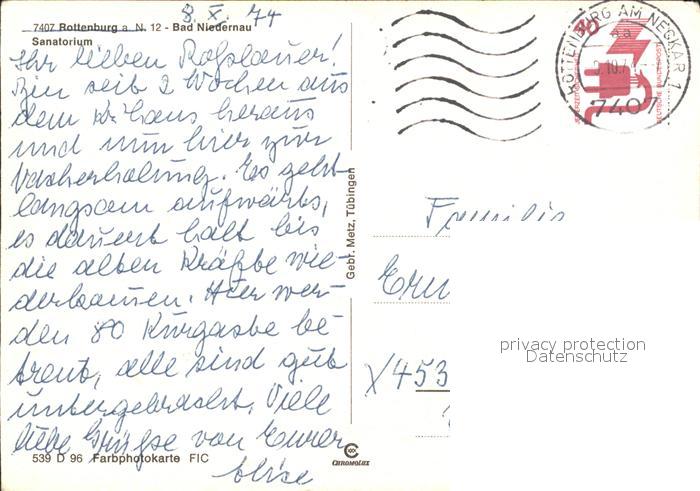 8. X. 74
7407 Rottenburg a. N. 12 - Bad Niedernau
Sanatorium
Ihr lieben Roßlauer!
Bin seit 2 Wochen aus
dem Kr.haus heraus
und nun hier zur
Nacherholung. Es geht
langsam aufwärts,
es dauert halt bis
die alten Kräfte wie-
derkommen. Hier wer-
den 80 Kurgäste be-
treut, alle sind gut
untergebracht. Viele
liebe Grüße von Eurer
539 D 96 Farbphotokarte FIC
Gebr. Metz, Tübingen
CHROMOLUX
ROTTENBURG AM NECKAR 1
7407
30
DEUTSCHE BUNDESPOST
Familie
X453
privacy protection
Datenschutz